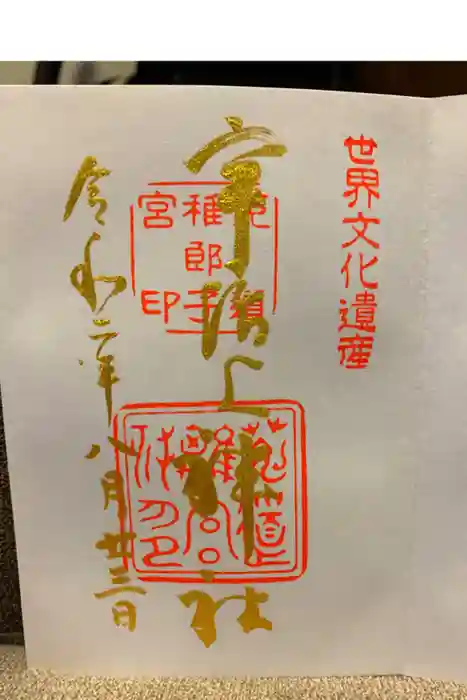 世界文化遺産
宇治上神社
令和二年八月廿三日
菟道稚郎子宮印